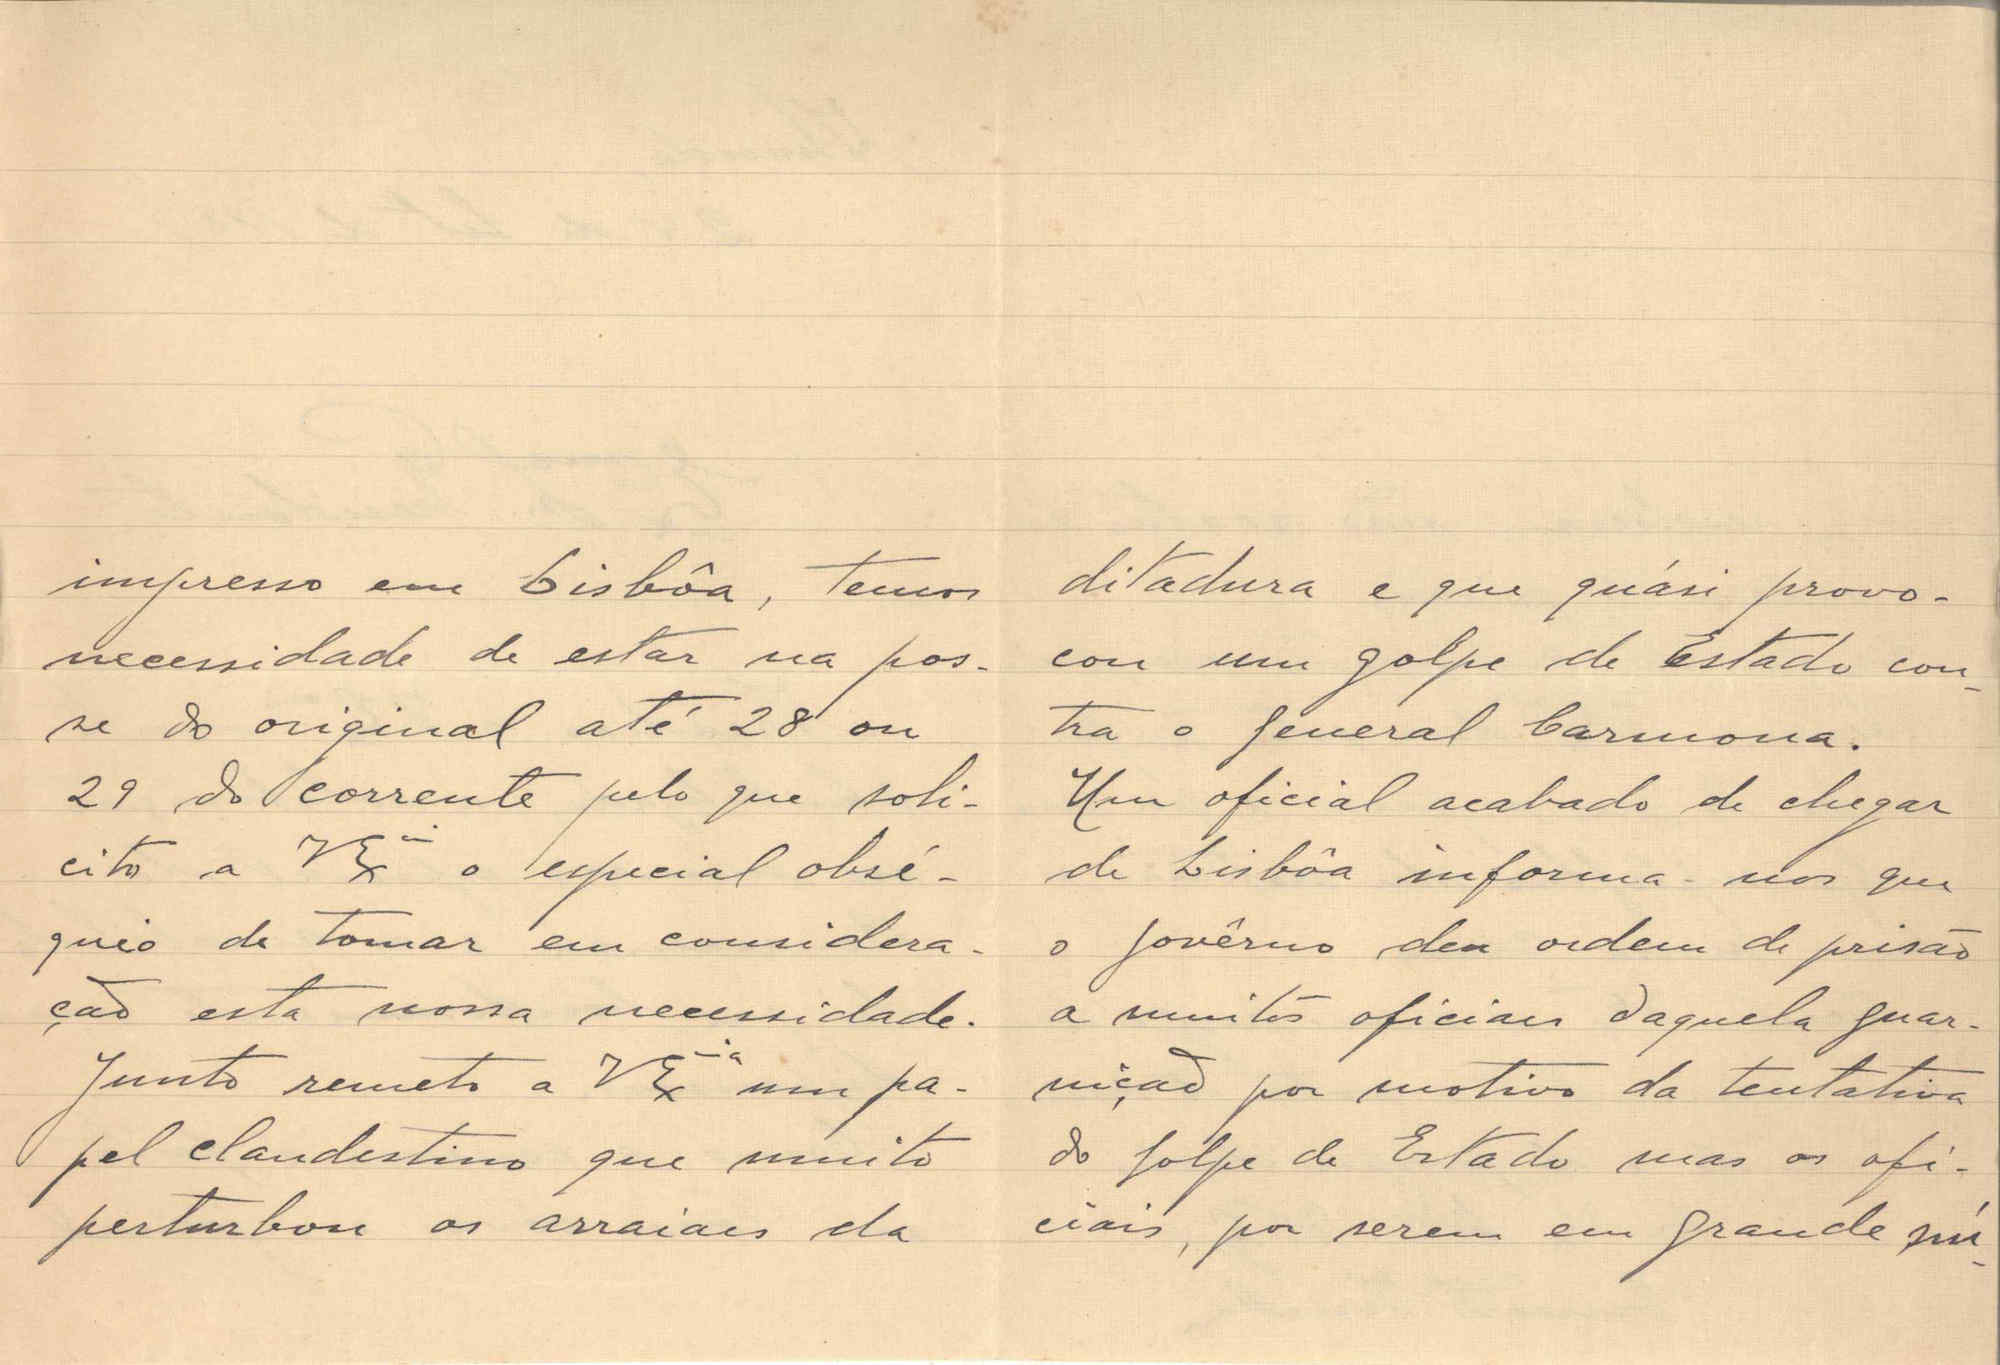 impresso em Lisbôa, temos
necessidade de estar na pos-
se do original até 28 ou
29 do corrente pelo que soli-
cito a VEx.ia o especial obsé-
quio de tomar em considera-
ção esta nossa necessidade.
Junto remeto a VEx.ia um pa-
pel clandestino que muito
perturbou os arraiaes da
ditadura e que quási provo-
cou um golpe de Estado con-
tra o general Carmona.
Um oficial acabado de chegar
de Lisbôa informa-nos que
o govêrno deu ordem de prisão
a muitos oficiaes daquela guar-
nição por motivo da tentativa
do golpe de Estado mas os ofi-
ciais, por serem em grande nú-